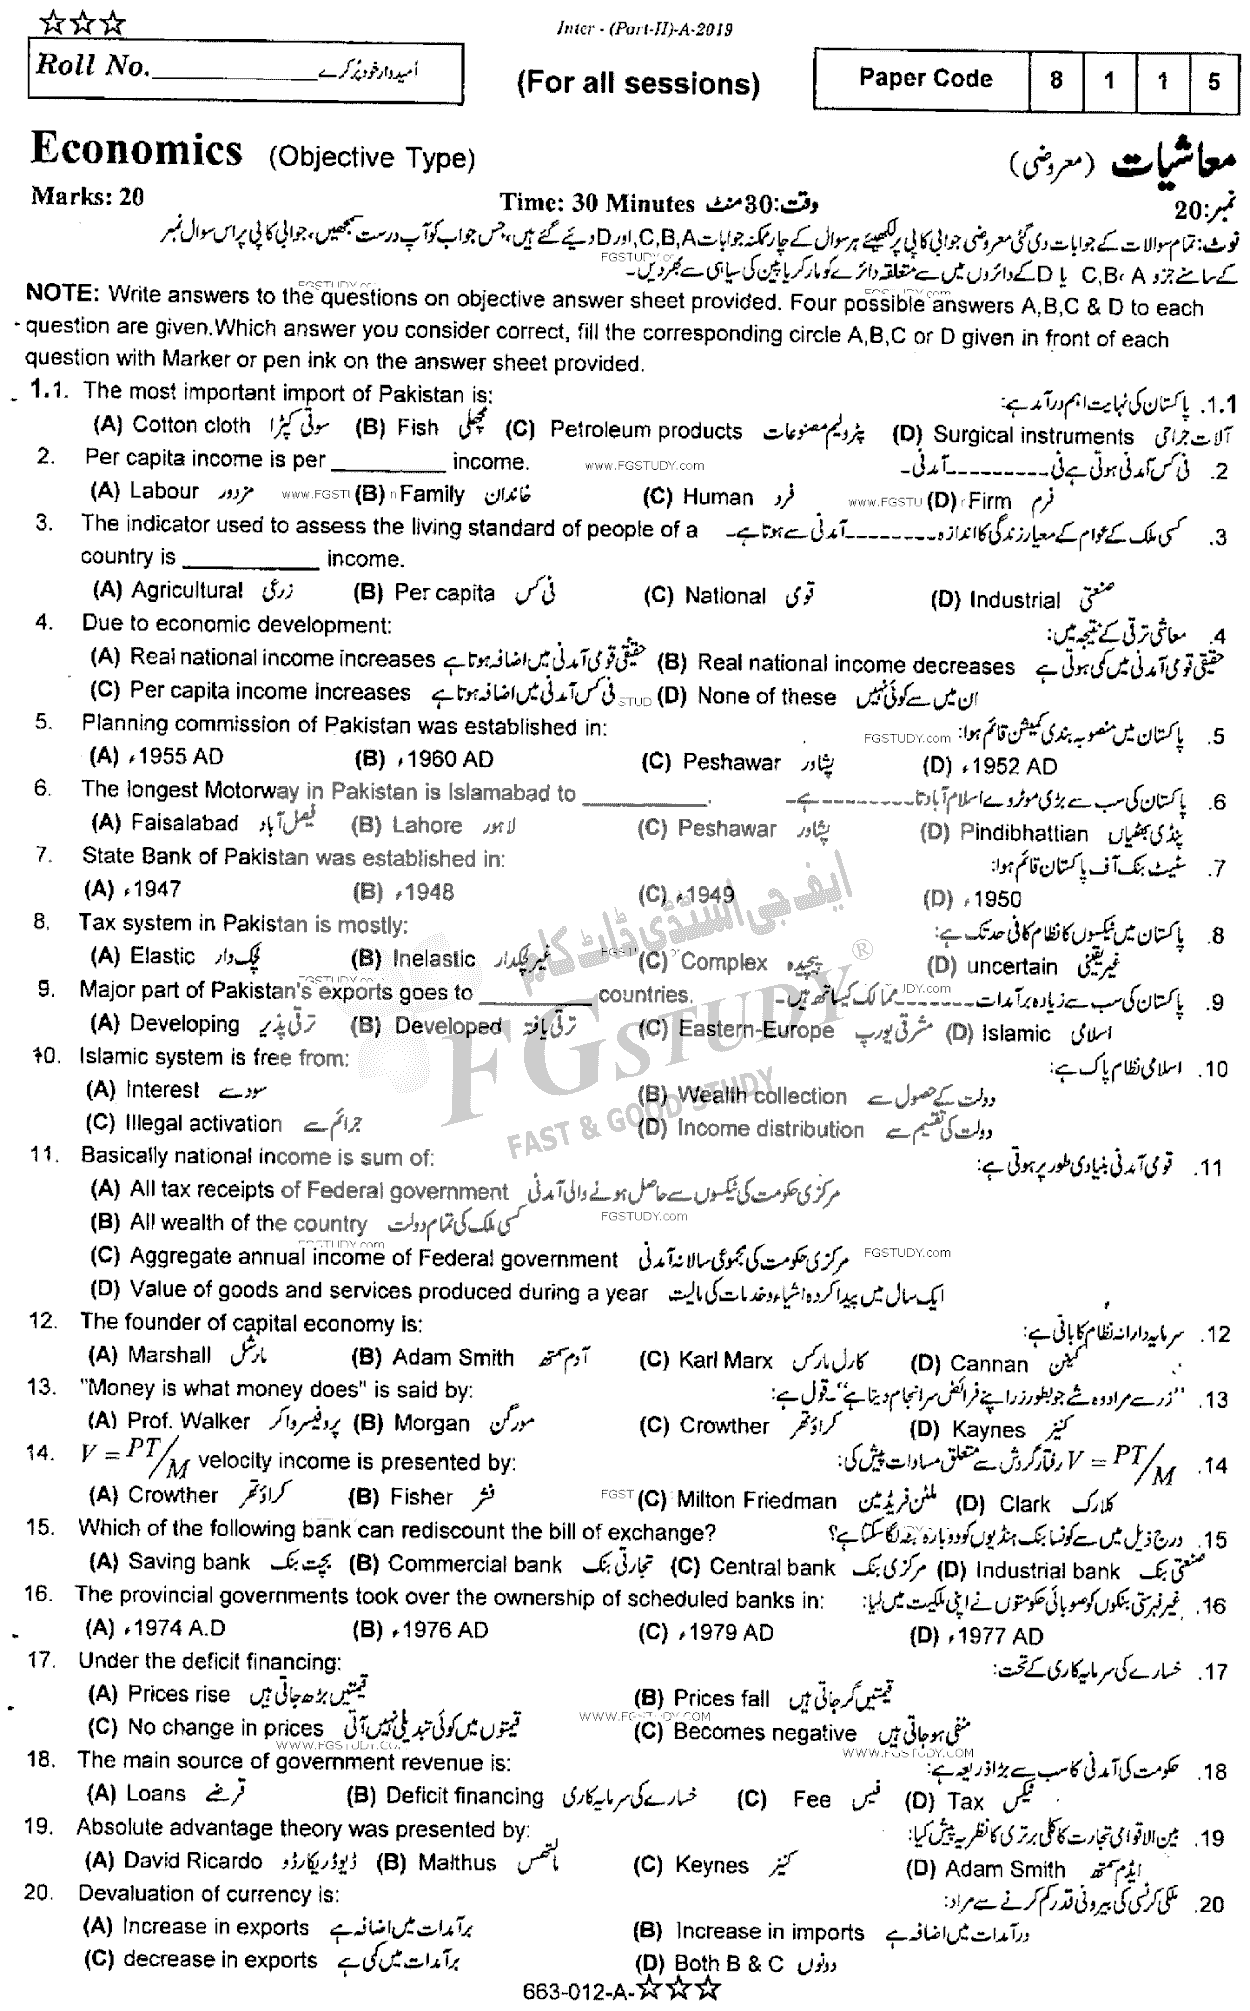 ☆☆☆
Inter - (Part-II)-A-2019
Roll No.____________ امیدوار خود پُر کرے
(For all sessions)
Paper Code 8 1 1 5
Economics (Objective Type) معاشیات (معروضی)
Marks: 20 Time: 30 Minutes وقت: 30 منٹ نمبر: 20
نوٹ: تمام سوالات کے جوابات دی گئی معروضی جوابی کاپی پر لکھیئے ہر سوال کے چار ممکنہ جوابات C,B,A, اور D دیئے گئے ہیں، جس جواب کو آپ درست سمجھیں، جوابی کاپی پر اس سوال نمبر
FGSTUDY.com
کے سامنے جزو C,B،A یا D کے دائروں میں سے متعلقہ دائرے کو مارکر یا پین کی سیاہی سے بھر دیں۔
NOTE: Write answers to the questions on objective answer sheet provided. Four possible answers A,B,C & D to each
question are given.Which answer you consider correct, fill the corresponding circle A,B,C or D given in front of each
question with Marker or pen ink on the answer sheet provided.
1.1. The most important import of Pakistan is: 1.1. پاکستان کی نہایت اہم درآمد ہے:
(A) Cotton cloth سوتی کپڑا (B) Fish مچھلی (C) Petroleum products پٹرولیم مصنوعات (D) Surgical instruments آلات جراحی
2. Per capita income is per __________ income. www.FGSTUDY.com 2. فی کس آمدنی ہوتی ہے فی --------- آمدنی۔
(A) Labour مزدور (B) Family خاندان (C) Human فرد (D) Firm فرم
3. The indicator used to assess the living standard of people of a 3. کسی ملک کے عوام کے معیار زندگی کا اندازہ -------- آمدنی سے ہوتا ہے۔
country is ____________ income.
(A) Agricultural زرعی (B) Per capita فی کس (C) National قومی (D) Industrial صنعتی
4. Due to economic development: 4. معاشی ترقی کے نتیجہ میں:
(A) Real national income increases حقیقی قومی آمدنی میں اضافہ ہوتا ہے (B) Real national income decreases حقیقی قومی آمدنی میں کمی ہوتی ہے
(C) Per capita income increases فی کس آمدنی میں اضافہ ہوتا ہے (D) None of these ان میں سے کوئی نہیں
5. Planning commission of Pakistan was established in: FGSTUDY.com 5. پاکستان میں منصوبہ بندی کمیشن قائم ہوا:
(A) ء1955 AD (B) ء1960 AD (C) Peshawar پشاور (D) ء1952 AD
6. The longest Motorway in Pakistan is Islamabad to ___________. 6. پاکستان کی سب سے بڑی موٹروے اسلام آباد تا --------- ہے۔
(A) Faisalabad فیصل آباد (B) Lahore لاہور (C) Peshawar پشاور (D) Pindibhattian پنڈی بھٹیاں
7. State Bank of Pakistan was established in: 7. سٹیٹ بنک آف پاکستان قائم ہوا:
(A) ء1947 (B) ء1948 (C) ء1949 (D) ء1950
8. Tax system in Pakistan is mostly: 8. پاکستان میں ٹیکسوں کا نظام کافی حد تک ہے:
(A) Elastic لچک دار (B) Inelastic غیر لچکدار (C) Complex پیچیدہ (D) uncertain غیر یقینی
9. Major part of Pakistan's exports goes to __________ countries. 9. پاکستان کی سب سے زیادہ برآمدات ------- ممالک کیساتھ ہیں۔
(A) Developing ترقی پذیر (B) Developed ترقی یافتہ (C) Eastern-Europe مشرقی یورپ (D) Islamic اسلامی
10. Islamic system is free from: 10. اسلامی نظام پاک ہے:
(A) Interest سود سے (B) Wealth collection دولت کے حصول سے
(C) Illegal activation جرائم سے (D) Income distribution دولت کی تقسیم سے
ایف جی اسٹڈی ڈاٹ کام
FGSTUDY ®
FAST & GOOD STUDY
11. Basically national income is sum of: 11. قومی آمدنی بنیادی طور پر ہوتی ہے:
(A) All tax receipts of Federal government مرکزی حکومت کی ٹیکسوں سے حاصل ہونے والی آمدنی
(B) All wealth of the country کسی ملک کی تمام دولت FGSTUDY.com
(C) Aggregate annual income of Federal government مرکزی حکومت کی مجموعی سالانہ آمدنی FGSTUDY.com
(D) Value of goods and services produced during a year ایک سال میں پیدا کردہ اشیاء و خدمات کی مالیت
12. The founder of capital economy is: 12. سرمایہ دارانہ نظام کا بانی ہے:
(A) Marshall مارشل (B) Adam Smith آدم سمتھ (C) Karl Marx کارل مارکس (D) Cannan کینن
13. "Money is what money does" is said by: 13. "زر سے مراد وہ شے جو بطور زر اپنے فرائض سرانجام دیتا ہے"۔ قول ہے:
(A) Prof. Walker پروفیسر واکر (B) Morgan مورگن (C) Crowther کراؤتھر (D) Kaynes کینز
14. V = PT/M velocity income is presented by: 14. V = PT/M رفتار گردش سے متعلق مساوات پیش کی:
(A) Crowther کراؤتھر (B) Fisher فشر (C) Milton Friedman ملٹن فریڈمین (D) Clark کلارک
15. Which of the following bank can rediscount the bill of exchange? 15. درج ذیل میں سے کونسا بنک ہنڈیوں کو دوبارہ بٹہ لگا سکتا ہے؟
(A) Saving bank بچت بنک (B) Commercial bank تجارتی بنک (C) Central bank مرکزی بنک (D) Industrial bank صنعتی بنک
16. The provincial governments took over the ownership of scheduled banks in: 16. غیر فہرستی بنکوں کو صوبائی حکومتوں نے اپنی ملکیت میں لیا:
(A) ء1974 A.D (B) ء1976 AD (C) ء1979 AD (D) ء1977 AD
17. Under the deficit financing: 17. خسارے کی سرمایہ کاری کے تحت:
(A) Prices rise قیمتیں بڑھ جاتی ہیں (B) Prices fall قیمتیں گر جاتی ہیں
(C) No change in prices قیمتوں میں کوئی تبدیلی نہیں آتی WWW.FGSTUDY.COM (C) Becomes negative منفی ہو جاتی ہیں
WWW.FGSTUDY.COM WWW.FGSTUDY.COM
18. The main source of government revenue is: 18. حکومت کی آمدنی کا سب سے بڑا ذریعہ ہے:
(A) Loans قرضے (B) Deficit financing خسارے کی سرمایہ کاری (C) Fee فیس (D) Tax ٹیکس
19. Absolute advantage theory was presented by: 19. بین الاقوامی تجارت کا کلی برتری کا نظریہ پیش کیا:
(A) David Ricardo ڈیوڈ ریکارڈو (B) Malthus مالتھس (C) Keynes کینز (D) Adam Smith ایڈم سمتھ
20. Devaluation of currency is: 20. ملکی کرنسی کی بیرونی قدر کم کرنے سے مراد:
(A) Increase in exports برآمدات میں اضافہ ہے (B) Increase in imports درآمدات میں اضافہ ہے
(C) decrease in exports برآمدات میں کمی ہے (D) Both B & C دونوں
663-012-A-☆☆☆